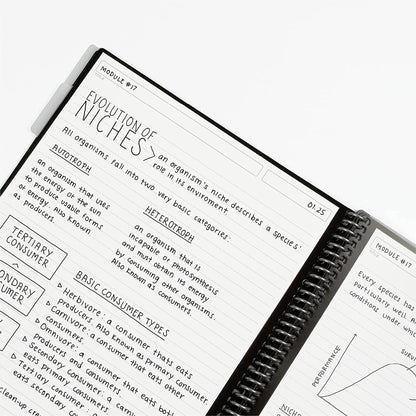 MODULE #17
EVOLUTION OF
NICHES > an organism's niche describes a species'
role in its enviroment.
All organisms fall into two very basic categories:
01.25
AUTOTROPH
an organism that uses
the energy of the sun
to produce usable forms
of energy. Also known
as producers.
HETEROTROPH
an organism that is
incapable of photosynthesis
and must obtain its energy
by consuming other organisms.
Also known as consumers.
TERTIARY
CONSUMER
CONDARY
NSUMER
BASIC CONSUMER TYPES
Herbivore: a consumer thats eats
producers. Also known as primary consumer.
Carnivore: a consumer that eats other
consumers.
Omnivore: a consumer that eats both
producers and consumers.
Secondary consumers
eat primary consumers.
Tertiary consumers
eats secondary
clean-up crew
MODULE #17
Every species has
particularly well. A
conditions under which
PERFORMANCE
NICHE